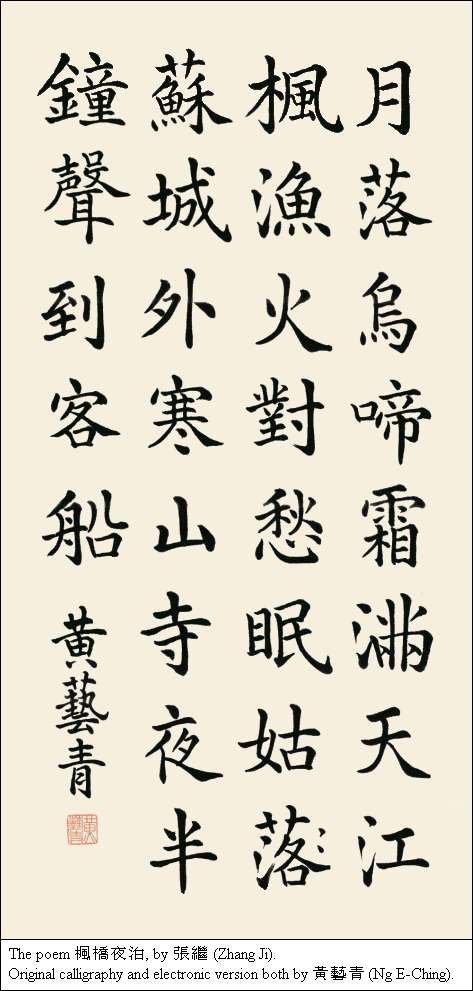 月落烏啼霜滿天江
楓漁火對愁眠姑落
蘇城外寒山寺夜半
鐘聲到客船
黃藝青
The poem 楓橋夜泊, by 張繼 (Zhang Ji).
Original calligraphy and electronic version both by 黃藝青 (Ng E-Ching).